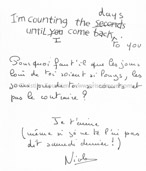 days
I'm counting the seconds
until you come back
I to you
Pourquoi faut'il que les jours
loin de toi soient si longs, les
jours près de toi si courts et
pas le contraire ?
Je t'aime
(même si je ne te l'ai pas
dit samedi dernier !)
Nicolas